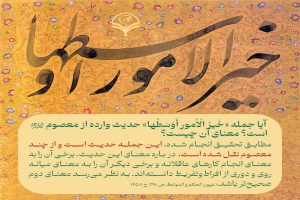 خیر الامور اوسطها
آیا جمله «خیرُ الأُمورِ أوسَطُها» حدیث وارده از معصوم
است؟ معنای آن چیست؟
مطابق تحقیق انجام شده، این جمله حدیث است و از چند
معصوم نقل شده است. در باره معنای این حدیث، برخی آن را به
معنای انجام کارهای عاقلانه و برخی دیگر آن را به معنای میانه
روی و دوری از افراط وتفریط دانسته‌اند. به نظر می‌رسد معنای دوم
صحیح‌تر باشد.